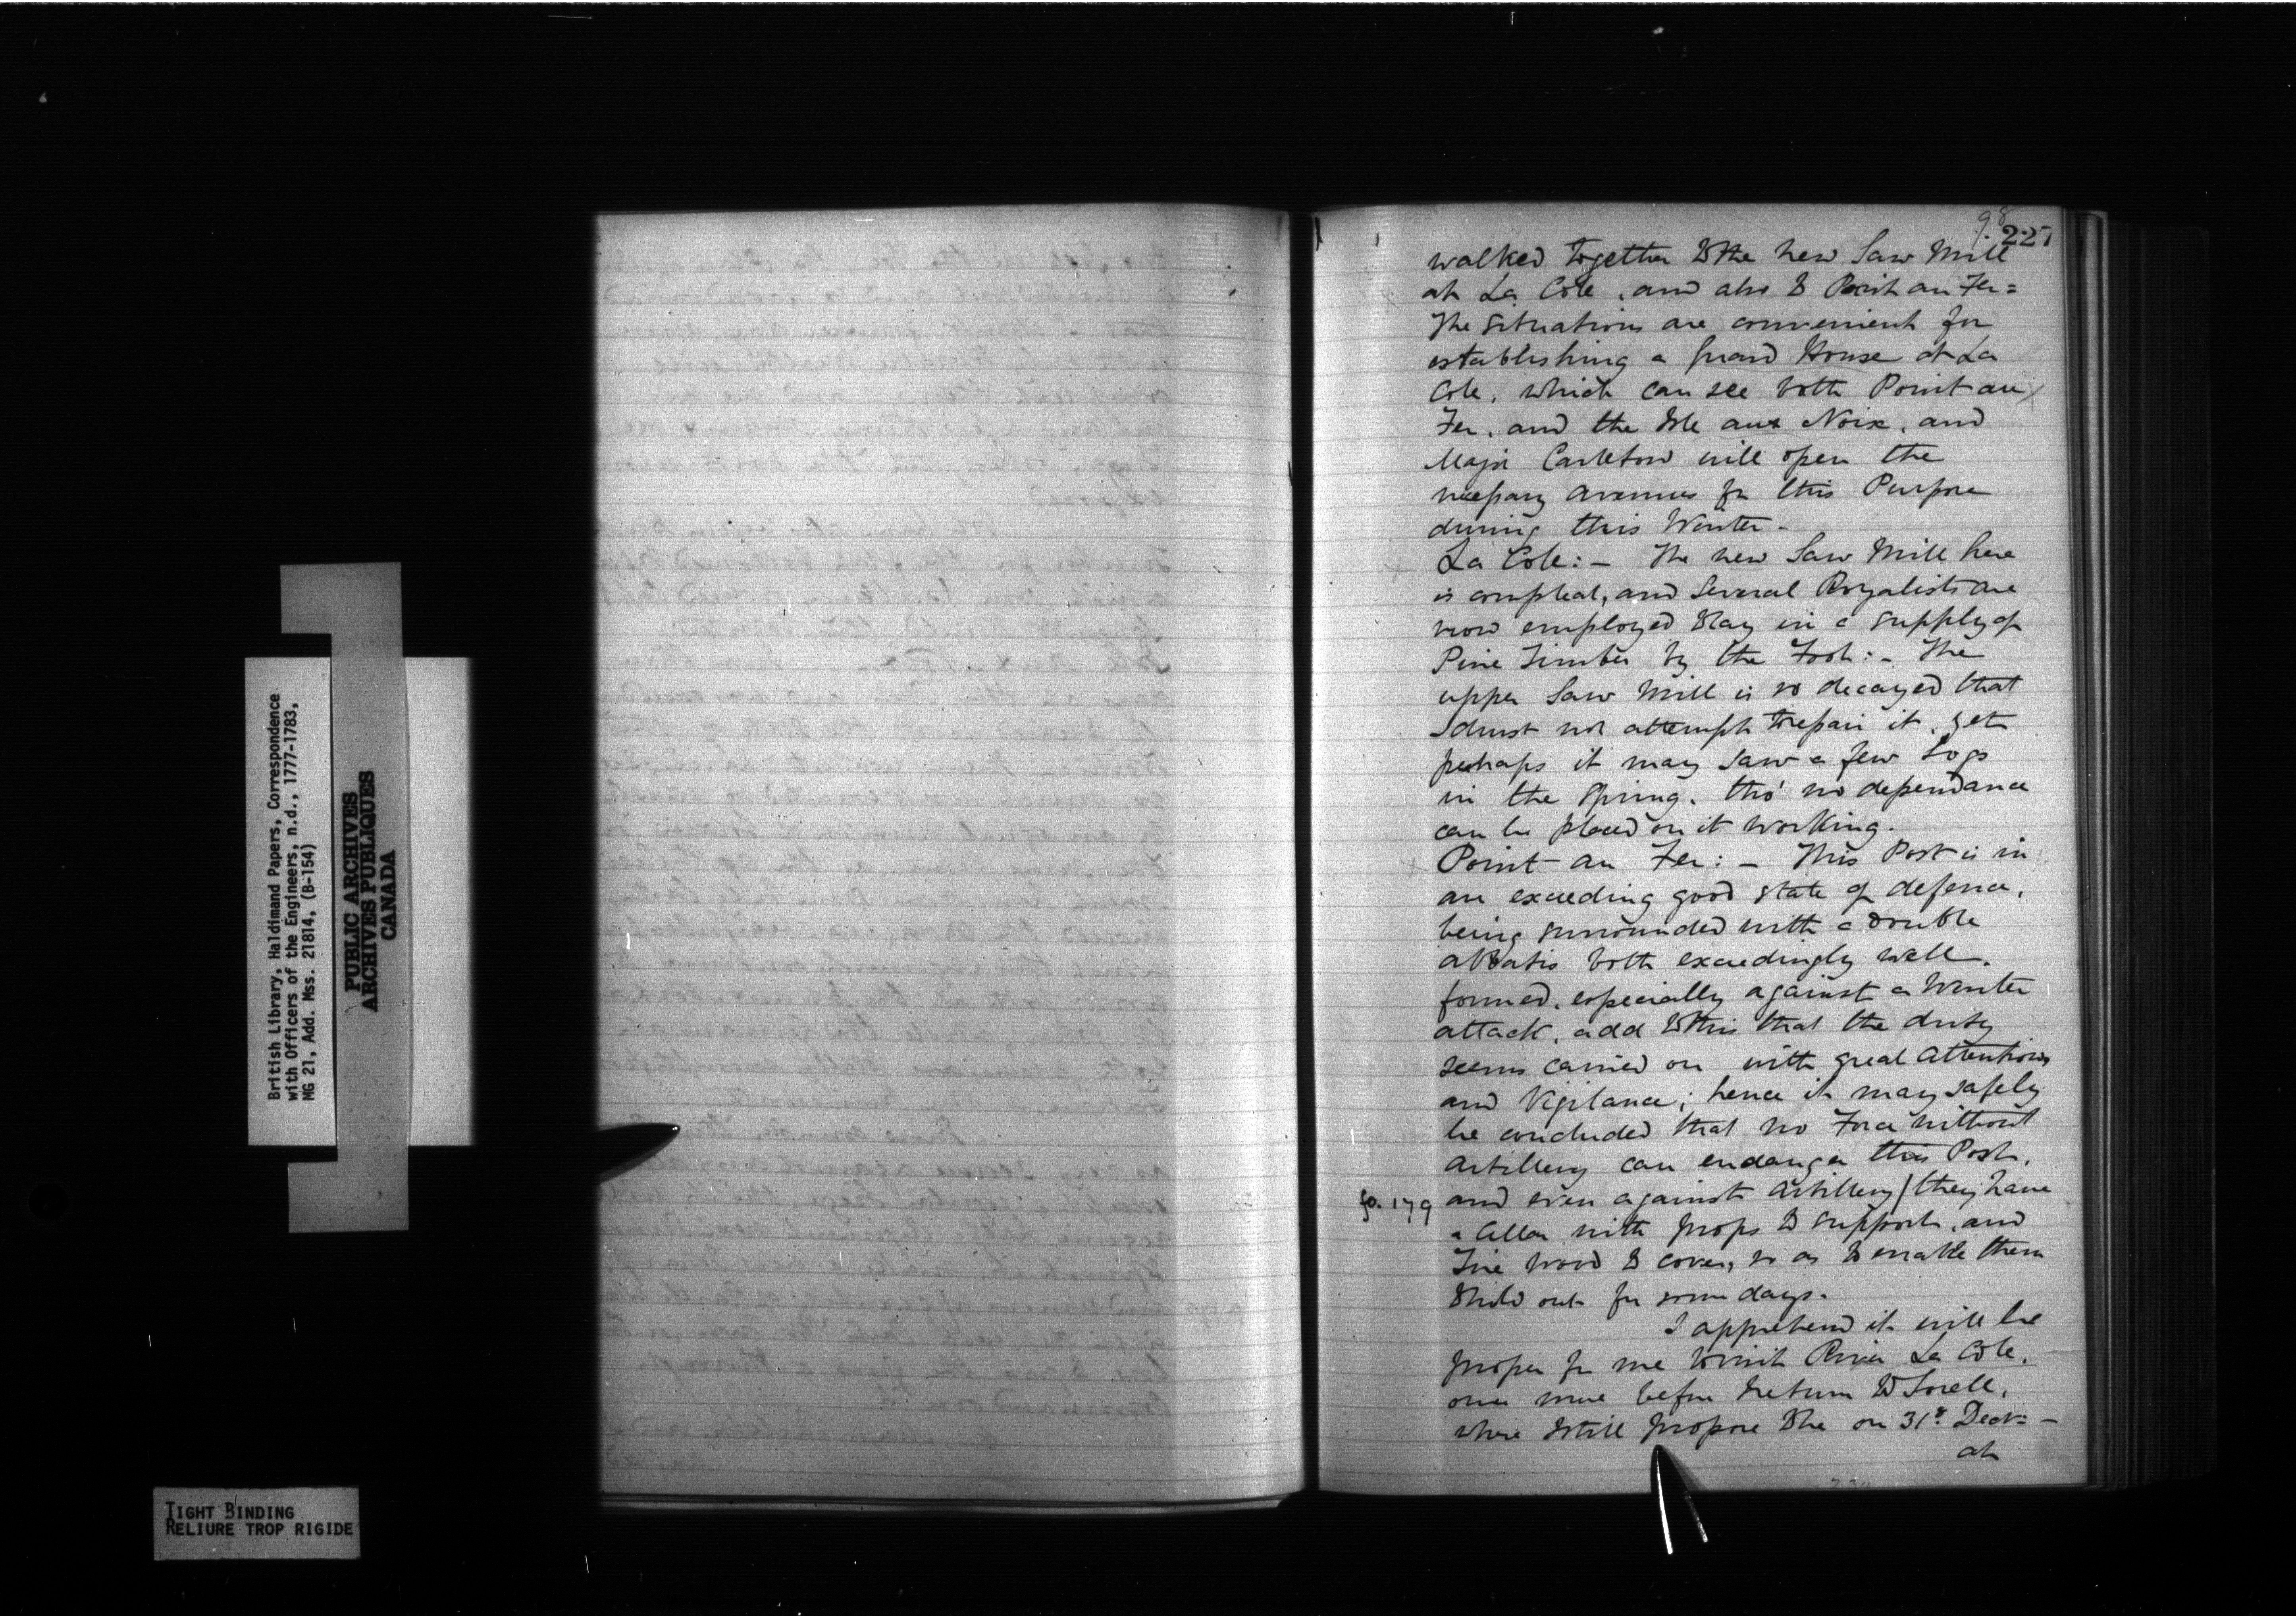 British Library, Haldimand Papers, Correspondence
with Officers of the Engineers, n.d., 1777-1783,
MG 21, Add. Mss. 21814, (B-154)
PUBLIC ARCHIVES
ARCHIVES PUBLIQUES
CANADA
TIGHT BINDING
RELIURE TROP RIGIDE
98
227
walked together to the new Saw Mill
at La Cole, and also to Point au Fer=
The situations are convenient for
establishing a Guard House at La
Cole, which can see both Point au
Fer, and the Isle aux Noix, and
Major Carleton will open the
necessary avenues for this Purpose
during this Winter -
La Cole: - The new Saw Mill here
is compleat, and Several Royalists are
now employed to lay in a supply of
Pine Timber by the Foot: - The
upper Saw Mill is so decayed that
I durst not attempt to repair it, yet
perhaps it may saw a few Logs
in the Spring, tho' no dependance
can be placed on it working.
Point au Fer: - This Post is in
an exceeding good state of defence,
being surrounded with a double
abbatis both exceedingly well
formed, especially against a Winter
attack, add to this that the duty
seems carried on with great Attention
and Vigilance; hence it may safely
be concluded that no Force without
Artillery can endanger this Post,
fo. 179 and even against Artillery/ they have
a Cellar with props to support, and
Fire wood to cover, so as to enable them
to hold out for some days.
I apprehend it will be
proper for me to visit River La Cole,
once more before I return to Sorell,
where I still propose to be on 31st Decr: -
at